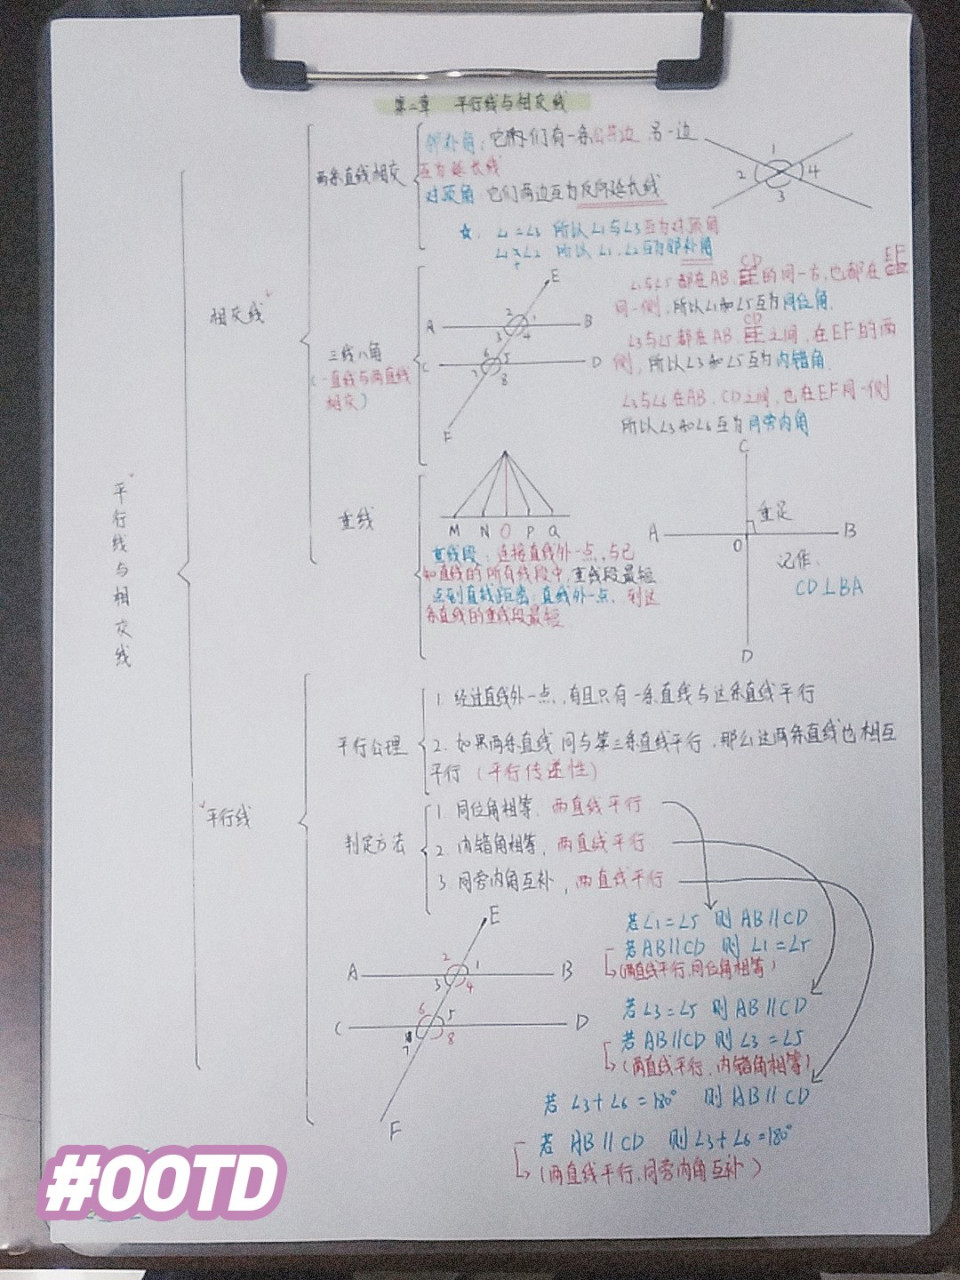 第二章 平行线与相交线
平行线与相交线
相交线
两条直线相交
邻补角:它们有一条公共边 另一边
互为延长线
对顶角 它们两边互为反向延长线
☆. ∠1=∠3 所以∠1与∠3互为对顶角
所以∠1、∠2互为邻补角
1
2
4
3
三线八角
(一直线与两直线
相交)
E
A
2
1
B
3
4
C
6
5
D
7
8
F
∠1与∠5都在AB、CD的同一方,也都在EF
同一侧,所以∠1和∠5互为同位角.
∠3与∠5都在AB、CD之间,在EF的两
侧,所以∠3和∠5互为内错角.
∠3与∠6在AB、CD之间,也在EF同一侧
所以∠3和∠6互为同旁内角
垂线
M N O P Q
垂线段:连接直线外一点,与已
知直线的所有线段中,垂线段最短
点到直线距离:直线外一点,到这
条直线的垂线段最短
C
垂足
A
B
O
记作:
CD⊥BA
D
平行线
平行公理
1. 经过直线外一点,有且只有一条直线与这条直线平行
2. 如果两条直线同与第三条直线平行,那么这两条直线也相互
平行(平行传递性)
判定方法
1. 同位角相等,两直线平行
2. 内错角相等,两直线平行
3. 同旁内角互补,两直线平行
E
A
2
1
B
3
4
C
6
5
D
7
8
F
若∠1=∠5 则AB∥CD
若AB∥CD 则∠1=∠5
(两直线平行,同位角相等)
若∠3=∠5 则AB∥CD
若AB∥CD 则∠3=∠5
(两直线平行,内错角相等)
若∠3+∠6=180° 则AB∥CD
若AB∥CD 则∠3+∠6=180°
(两直线平行,同旁内角互补)
#OOTD